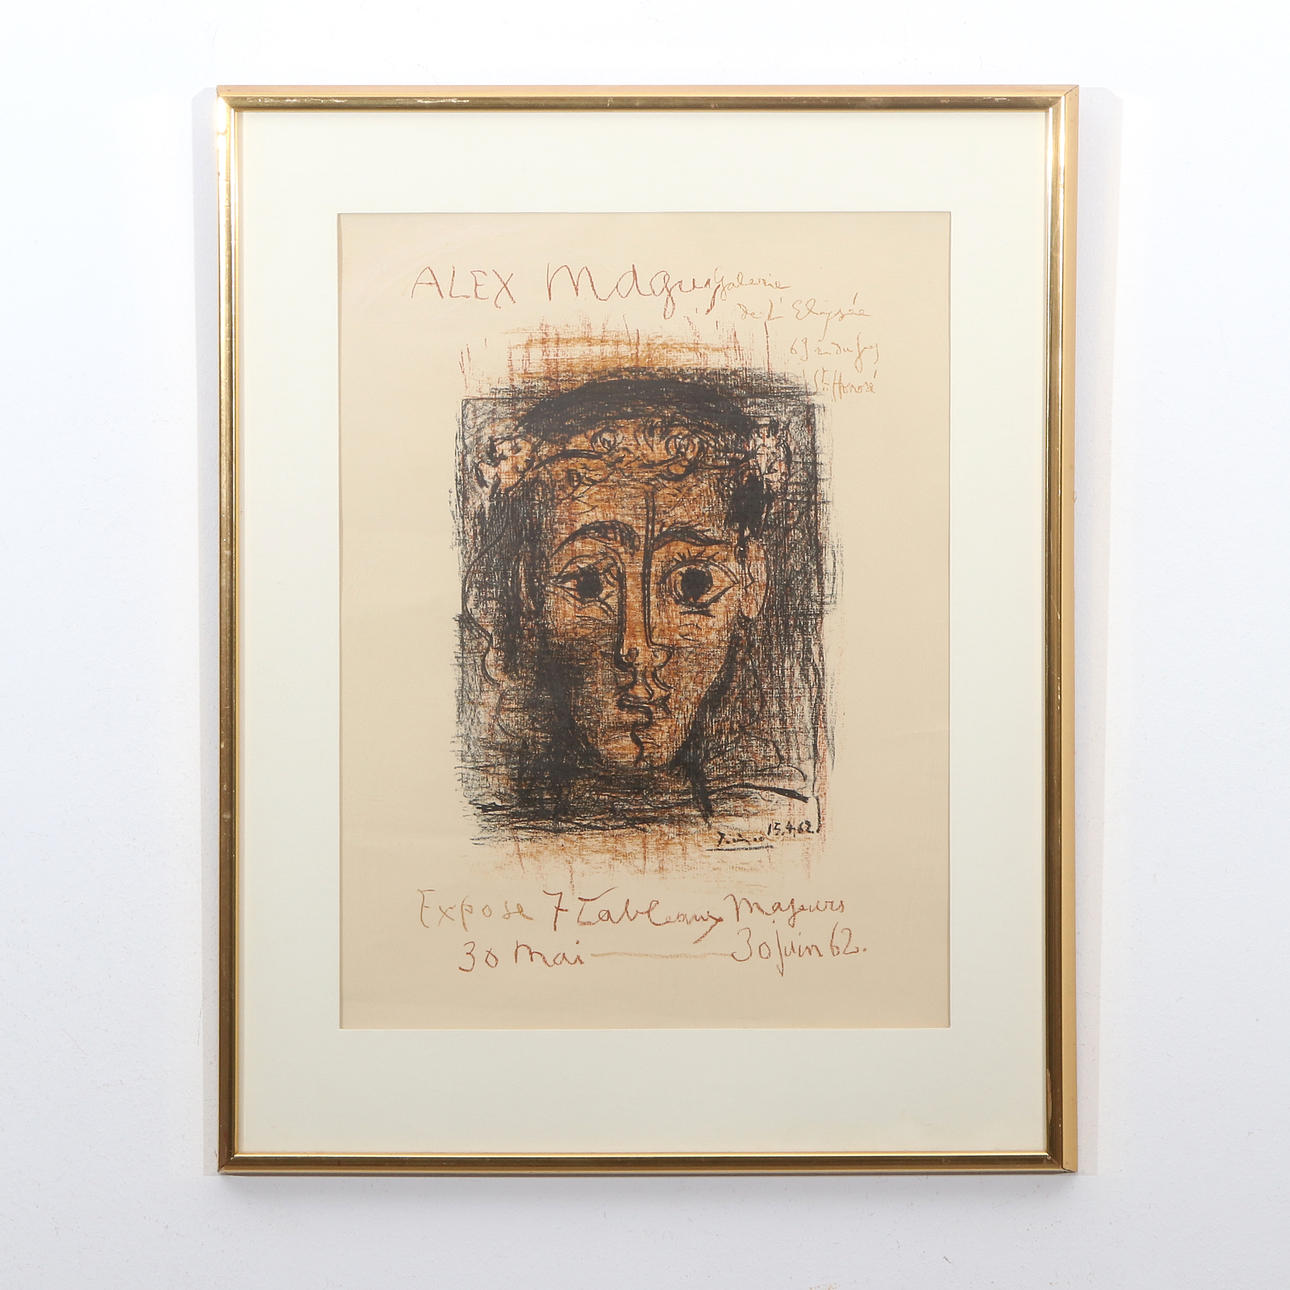 ALEX Maguy Galerie
de L'Elysée
69 r. du fbg
St Honoré
Picasso 15.4.62
Expose 7 Tableaux Majeurs
30 Mai — 30 Juin 62.